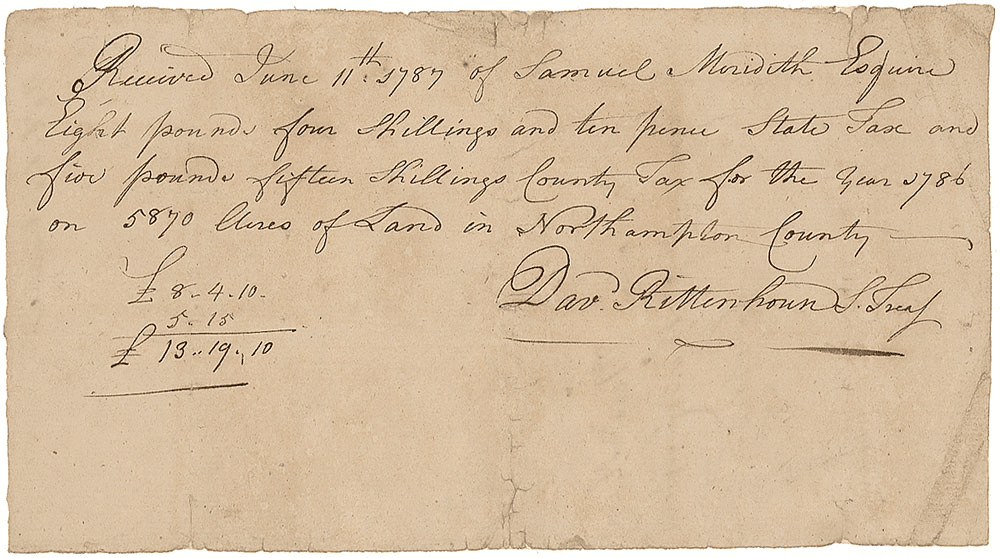 Received June 11th. 1787 of Samuel Meridith Esquire
Eight pounds four Shillings and ten pence State Tax and
five pounds fifteen Shillings County Tax for the Year 1786
on 5870 Acres of Land in Northampton County
£ 8-4-10-
5-15
£ 13-19-10
Davd. Rittenhouse S. Treas